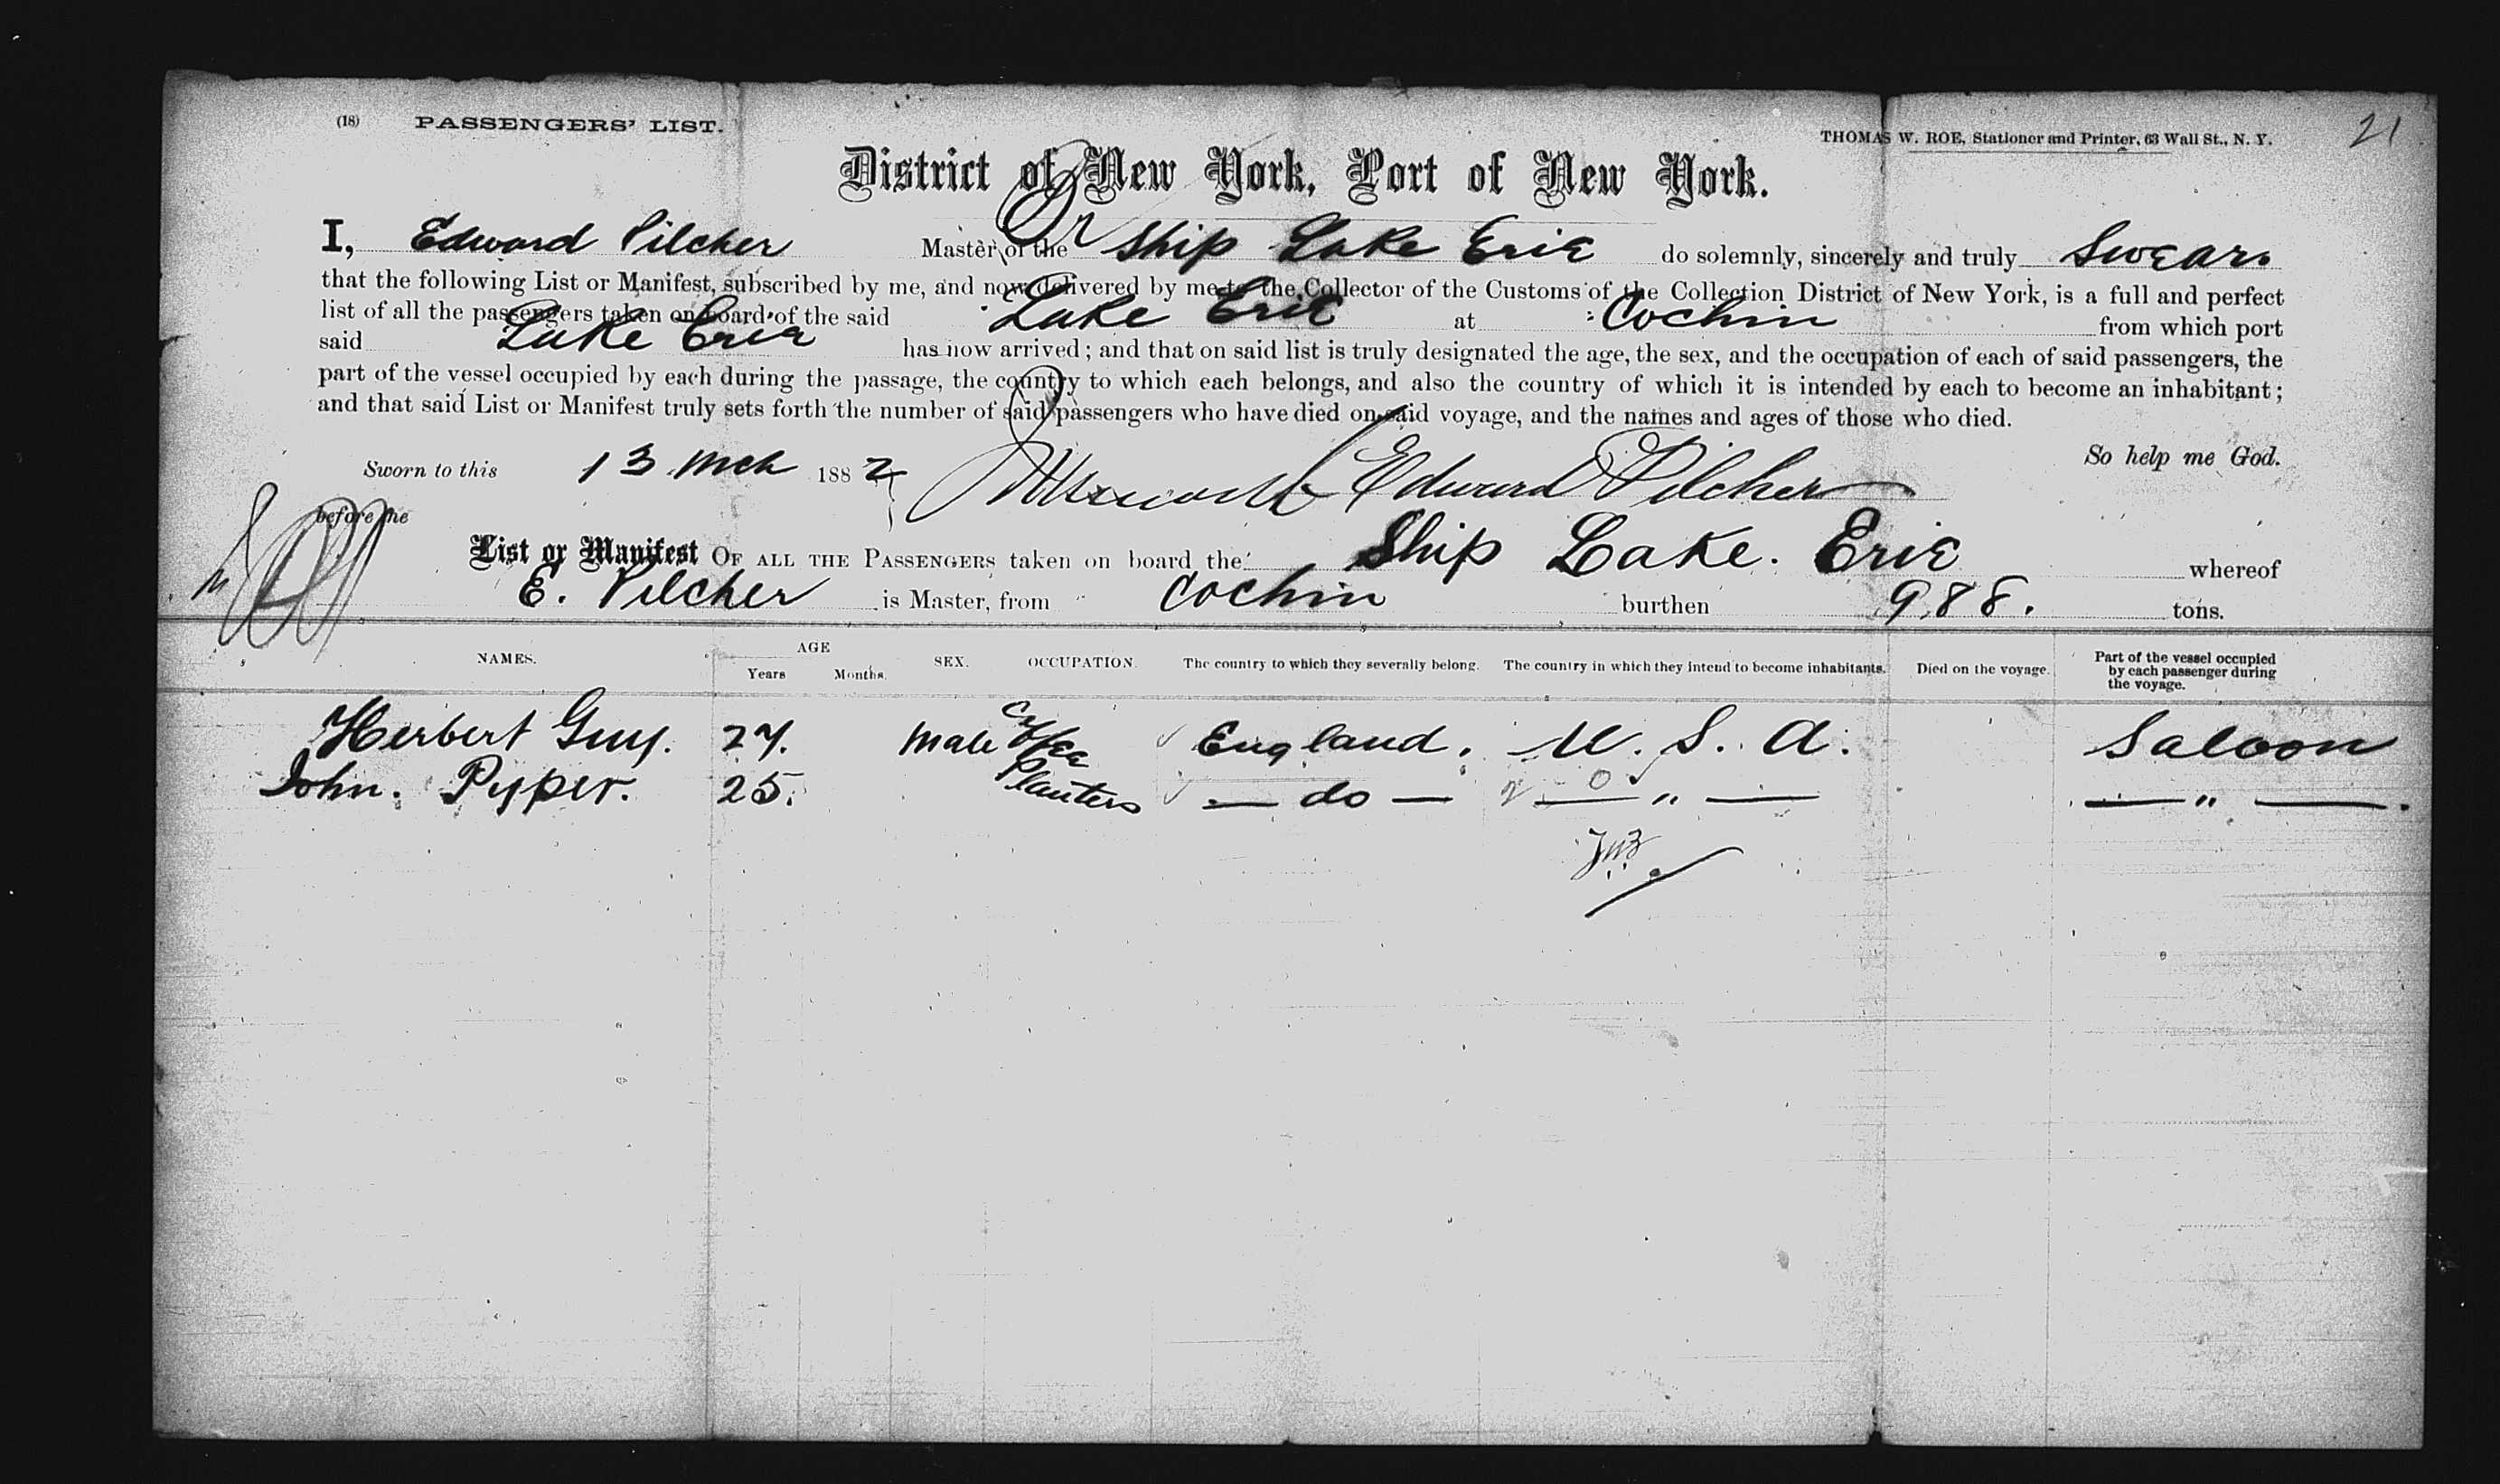 (18) PASSENGERS' LIST.
THOMAS W. ROE, Stationer and Printer, 63 Wall St., N. Y.
21
District of New York, Port of New York.
I, Edward Pilcher Master of the Ship Lake Erie do solemnly, sincerely and truly Swear
that the following List or Manifest, subscribed by me, and now delivered by me to the Collector of the Customs of the Collection District of New York, is a full and perfect
list of all the passengers taken on board of the said Lake Erie at Cochin from which port
said Lake Erie has now arrived; and that on said list is truly designated the age, the sex, and the occupation of each of said passengers, the
part of the vessel occupied by each during the passage, the country to which each belongs, and also the country of which it is intended by each to become an inhabitant;
and that said List or Manifest truly sets forth the number of said passengers who have died on said voyage, and the names and ages of those who died.
So help me God.
Sworn to this 13 Mch 1882 Edward Pilcher
before me
List or Manifest OF ALL THE PASSENGERS taken on board the Ship Lake. Erie whereof
E. Pilcher is Master, from Cochin burthen 988. tons.
NAMES. AGE Years Months. SEX. OCCUPATION. The country to which they severally belong. The country in which they intend to become inhabitants. Died on the voyage. Part of the vessel occupied by each passenger during the voyage.
Herbert Guy. 27. Male Coffee England. U. S. A. Saloon
John. Pyper. 25. Planters — do — — " — — " —.